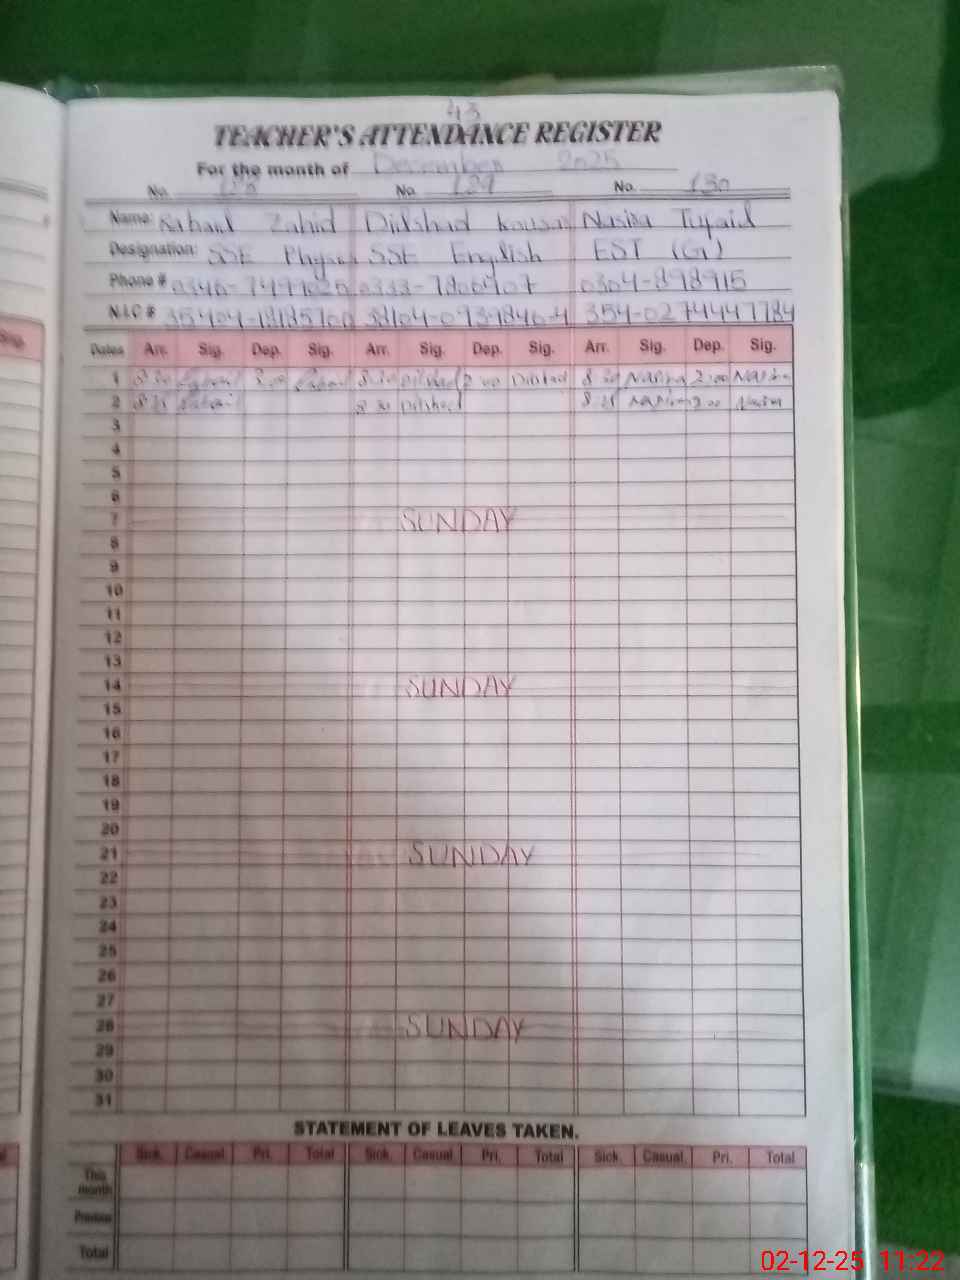 43
TEACHER'S ATTENDANCE REGISTER
For the month of December 2025
No. No. 129 No. 130
Name: Rabail Zahid Didshad Kausar Nasira Tufail
Designation: SSE Physics SSE English EST (G)
Phone # 0304-898915
N.I.C #
Dates Arr. Sig. Dep. Sig. Arr. Sig. Dep. Sig. Arr. Sig. Dep. Sig.
1 8:30 Rabail Rabail 8:30 Dilshad 2:00 Dilshad 8:30 Nasira 2:00 Nasira
2 Rabail 8:30 Dilshad Nasira 2:00 Nasira
3
4
5
6
7 SUNDAY
8
9
10
11
12
13
14 SUNDAY
15
16
17
18
19
20
21 SUNDAY
22
23
24
25
26
27
28 SUNDAY
29
30
31
STATEMENT OF LEAVES TAKEN.
Sick. Casual Pri. Total Sick. Casual Pri. Total Sick. Casual. Pri. Total
This month
Previous
Total
02-12-25 11:22